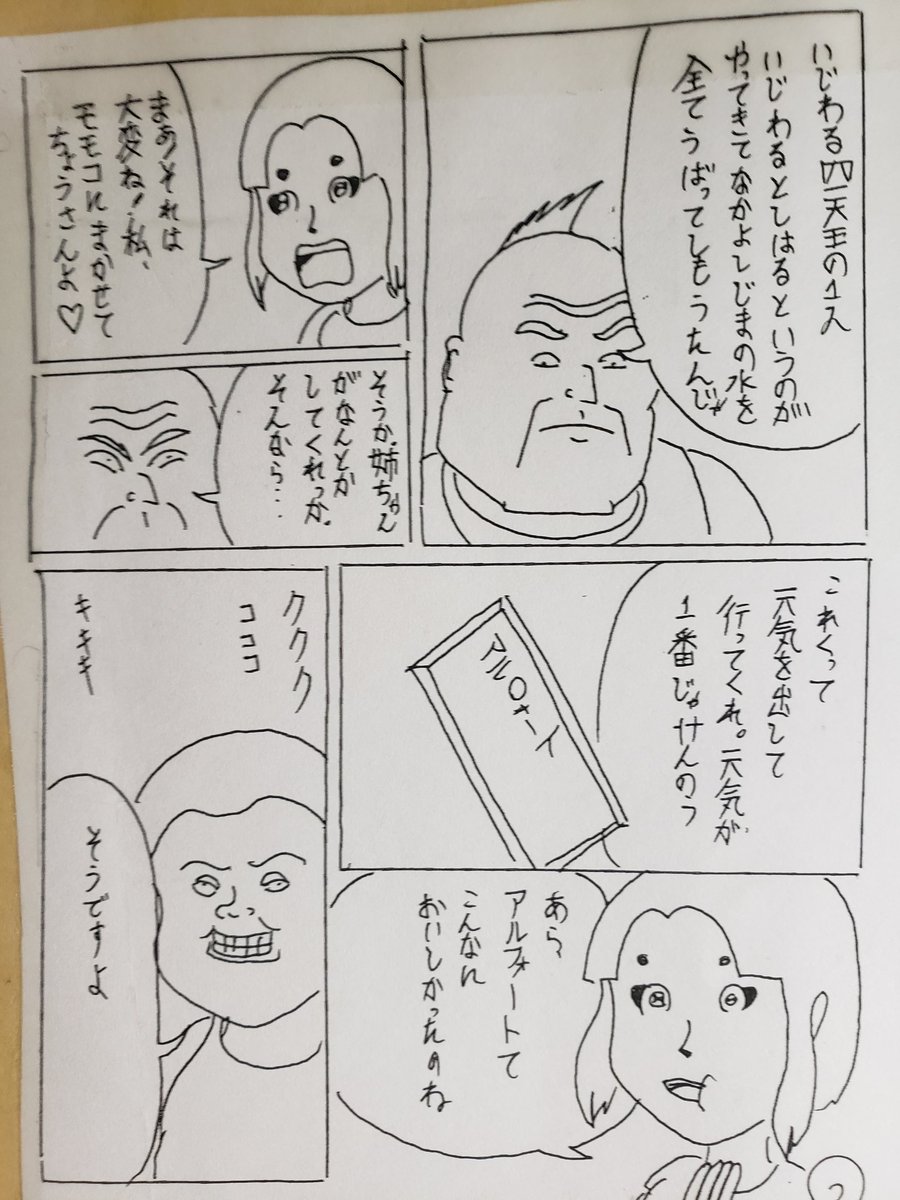 いじわる四天王の1人
いじわるとしはるというのが
やってきてなかよしじまの水を
全てうばってしもうたんじゃ
まあそれは
大変ね!私、
モモコにまかせて
ちょうさんよ♡
そうか、姉ちゃん
がなんとか
してくれっか。
そんなら…
これくって
元気を出して
行ってくれ。元気が
1番じゃけんのう
アル〇ォーイ
あら、
アルフォートて
こんなに
おいしかったのね
ククク
ココココ
キキキ
そうですよ
2